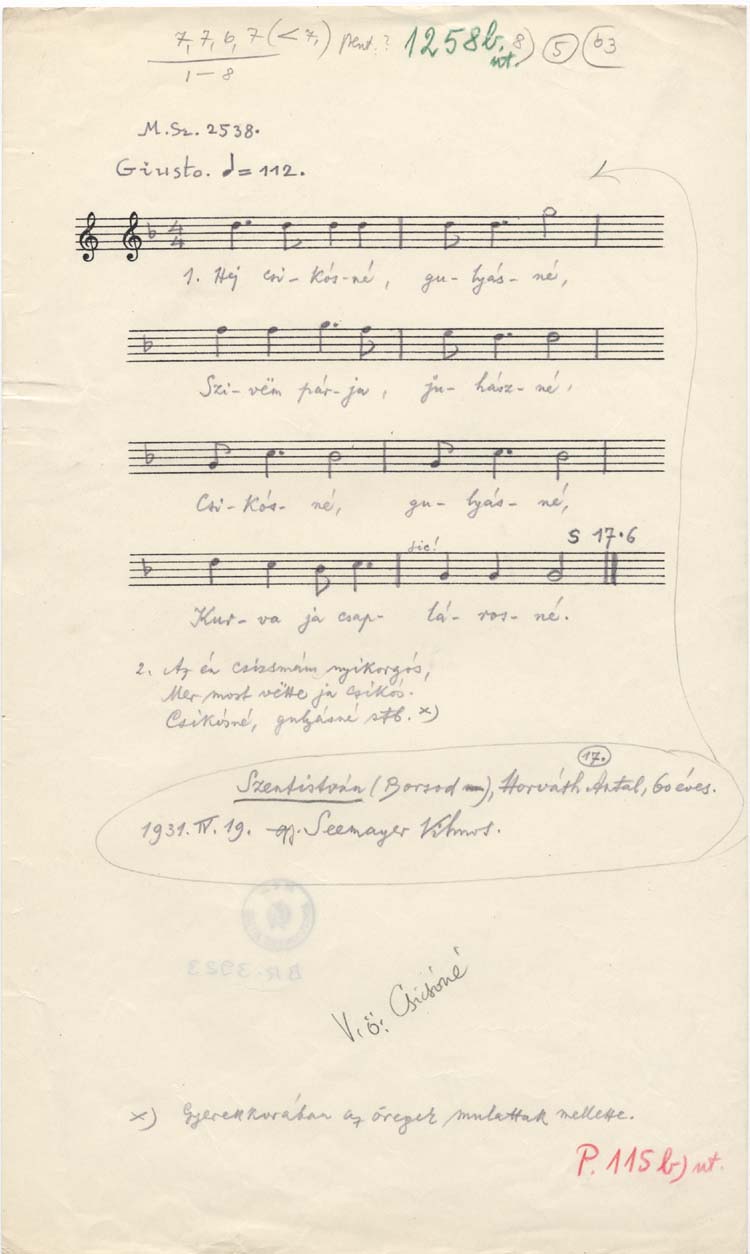 7, 7, 6, 7 (< 7,) pent.? 1258b, nt. 8) 5 b3
1 – 8
M. Sz. 2538.
Giusto. = 112.
4
4
1. Hej csi- kós- né, gu- lyás- né,
Szi- vëm pár- ja, ju- hász- né,
Csi- kós- né, gu- lyás- né,
sic! S 17.6
Kur- va ja csap- lá- ros- né.
2. Az én csizsmám nyikorgós,
Mer most vëtte ja csikós.
Csikósné, gulyásné stb. x)
17.
Szentistván (Borsod m), Horváth Antal, 60 éves.
1931. IV. 19. gy. Seemayer Vilmos.
BR-3923
V.ö: Csicsóné
x) Gyerekkorában az öregek mulattak mellette.
P. 115 b) nt.